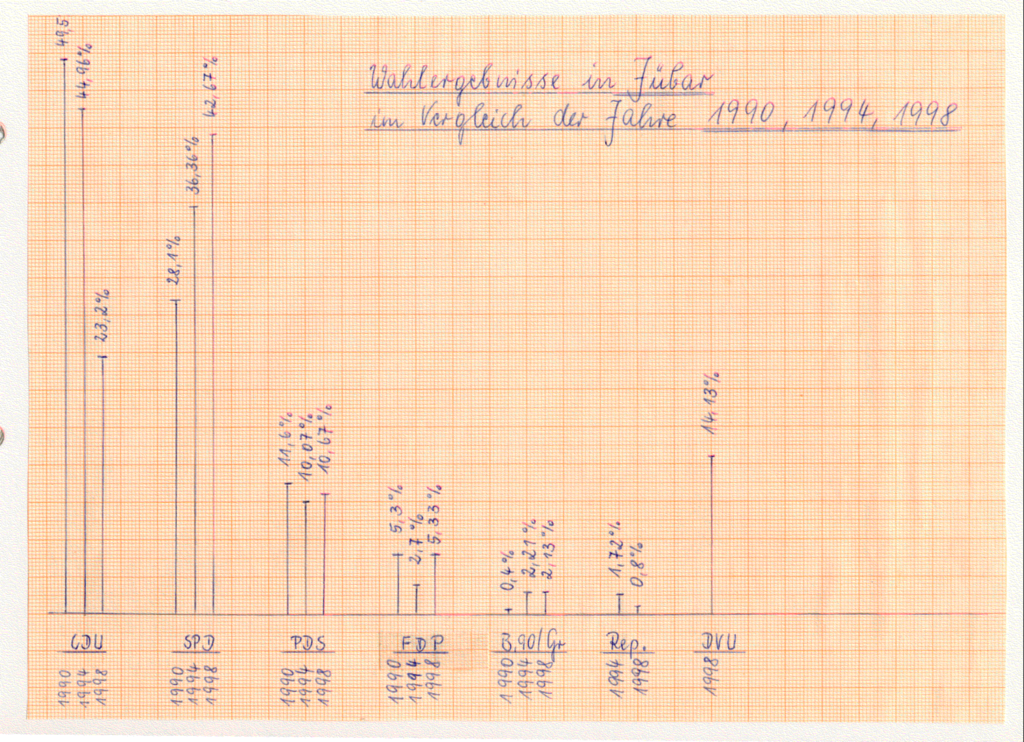 Wahlergebnisse in Jübar
im Vergleich der Jahre 1990, 1994, 1998
49,5
44,96%
23,2%
28,1%
36,36%
42,67%
11,6%
10,07%
10,67%
5,3%
2,7%
5,33%
0,4%
2,21%
2,13%
1,72%
0,8%
14,13%
CDU
SPD
PDS
FDP
B,90/Gr
Rep.
DVU
1990
1994
1998
1990
1994
1998
1990
1994
1998
1990
1994
1998
1990
1994
1998
1994
1998
1998